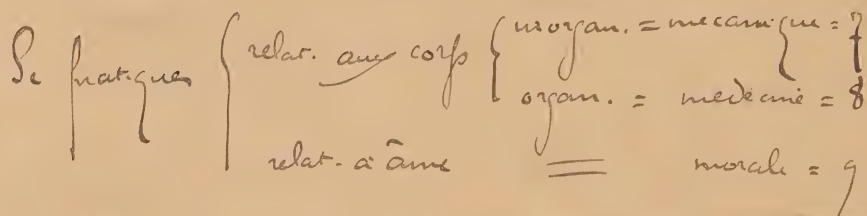 Sc pratiques { relat. aux corps { inorgan. = mécanique = 7
organ. = médecine = 8
relat. à âme = morale = 9